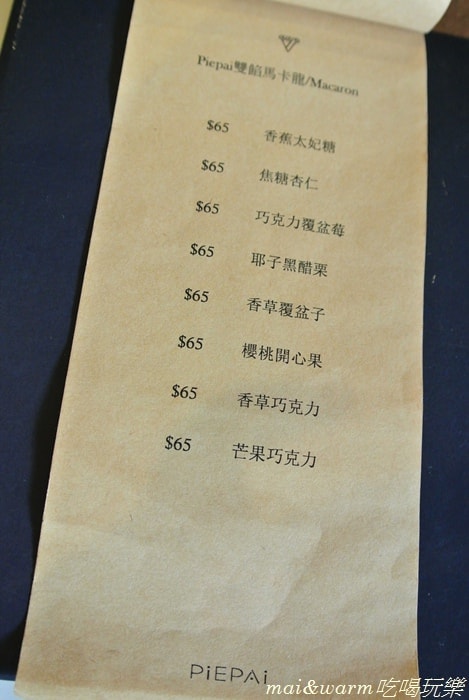 Piepai雙餡馬卡龍/Macaron
$65 香蕉太妃糖
$65 焦糖杏仁
$65 巧克力覆盆莓
$65 耶子黑醋栗
$65 香草覆盆子
$65 櫻桃開心果
$65 香草巧克力
$65 芒果巧克力
PiEPAi
mai&warm吃喝玩樂